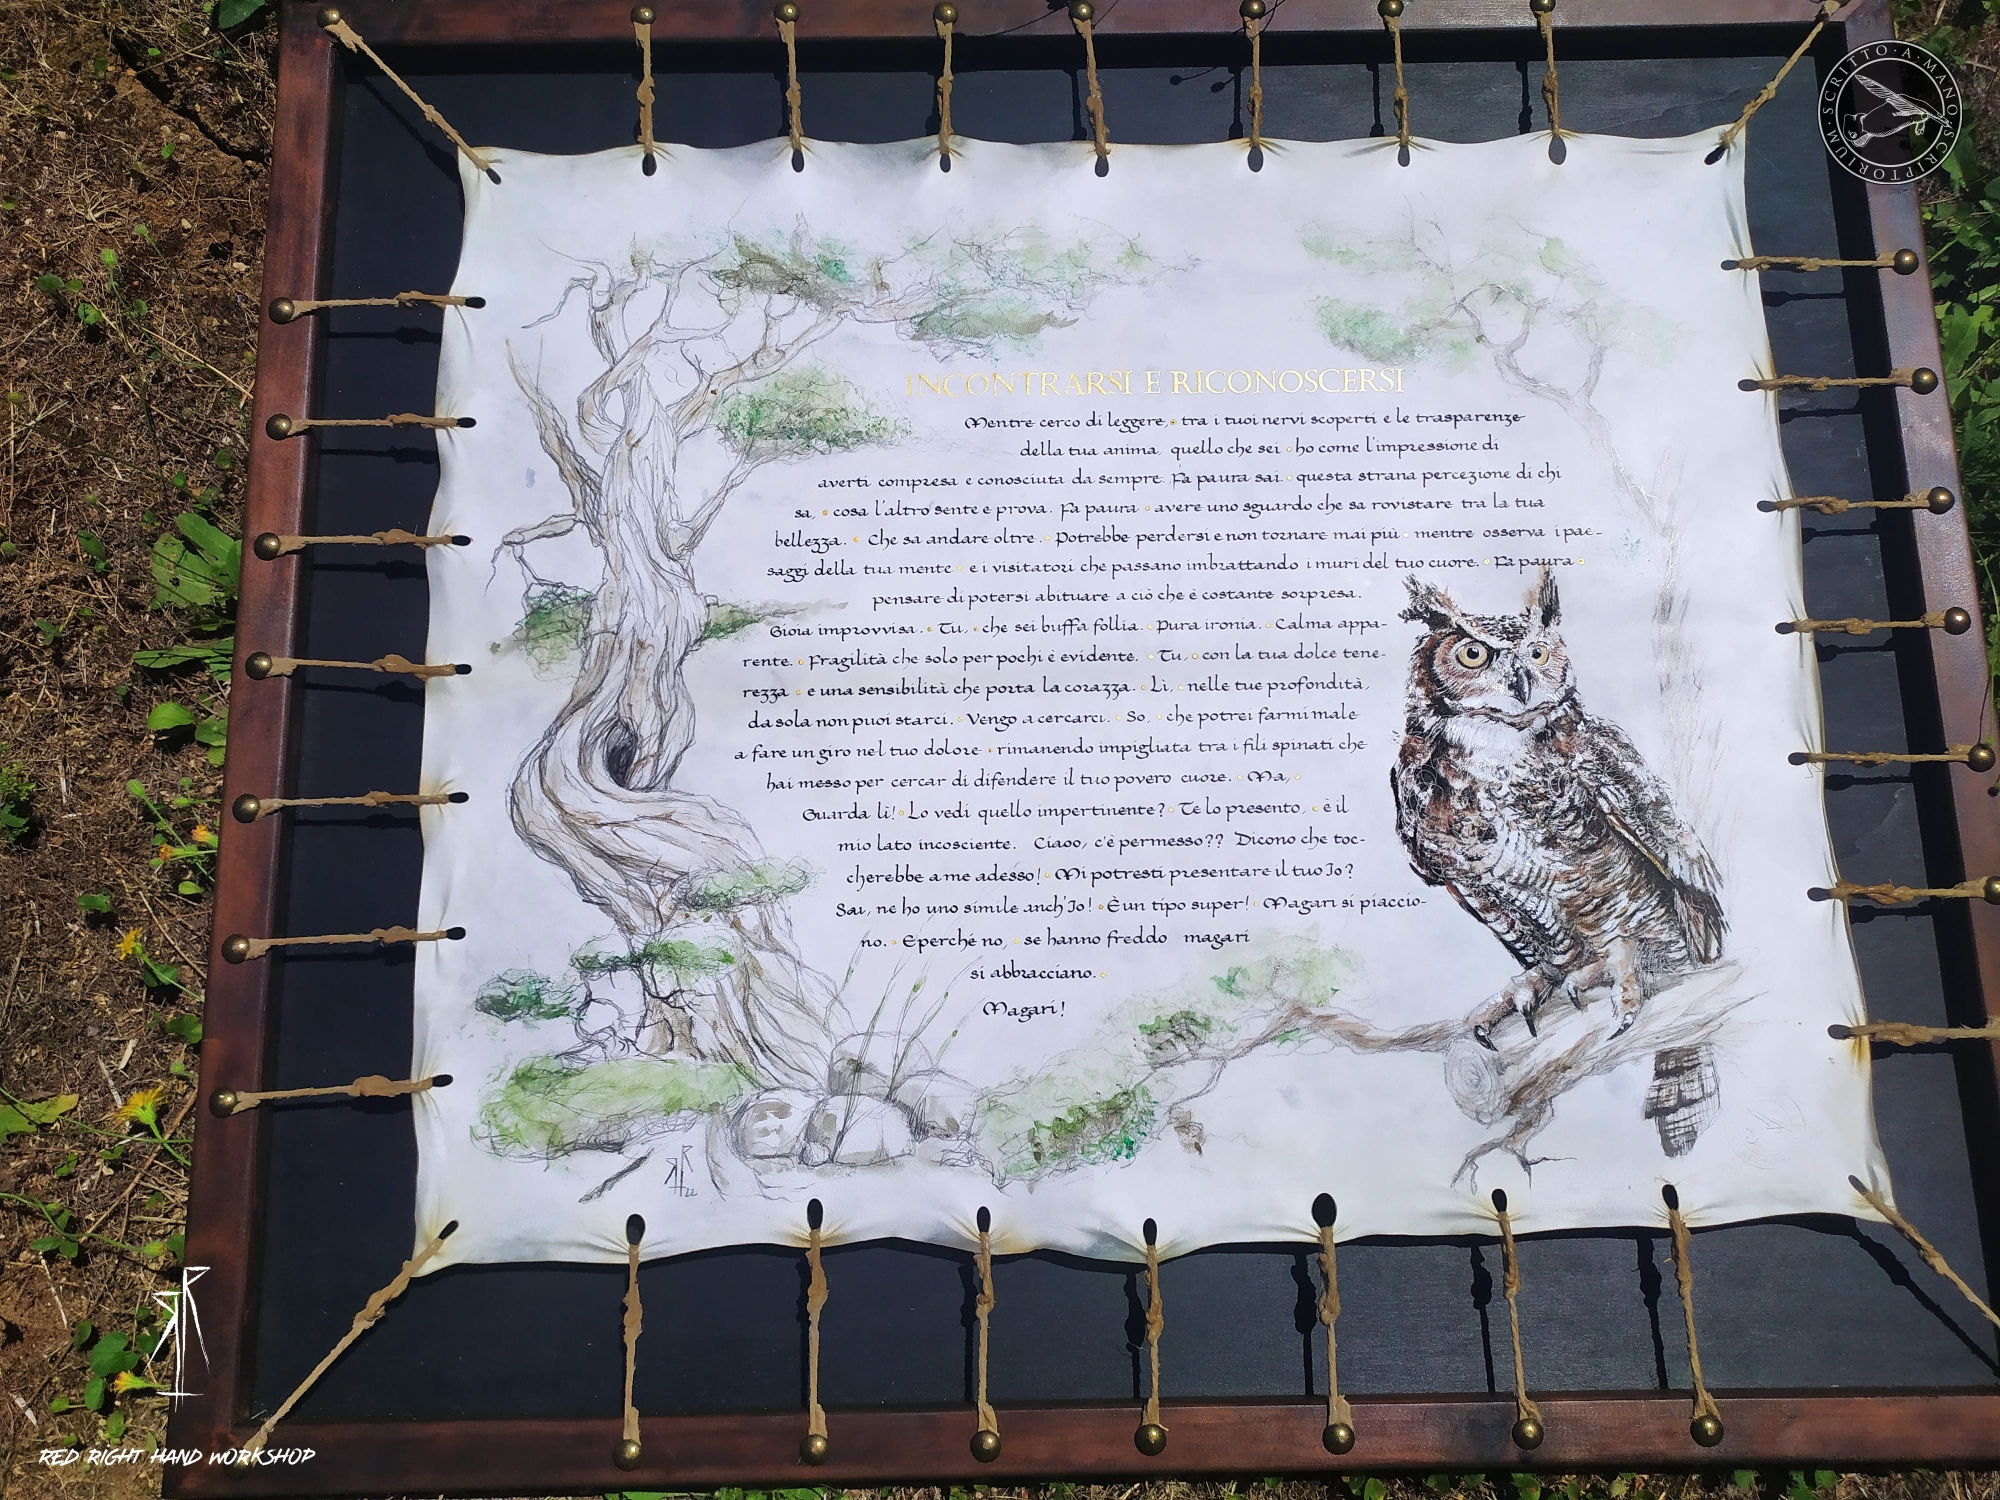 SCRITTO · A · MANO · SCRIPTORIUM ·
INCONTRARSI E RICONOSCERSI
Mentre cerco di leggere, tra i tuoi nervi scoperti e le trasparenze
della tua anima, quello che sei ho come l'impressione di
averti compresa e conosciuta da sempre. Fa paura sai. questa strana percezione di chi
sa, cosa l'altro sente e prova. Fa paura avere uno sguardo che sa rovistare tra la tua
bellezza. Che sa andare oltre. Potrebbe perdersi e non tornare mai più mentre osserva i pae-
saggi della tua mente e i visitatori che passano imbrattando i muri del tuo cuore. Fa paura
pensare di potersi abituare a ciò che è costante sorpresa.
Gioia improvvisa. Tu, che sei buffa follia. Pura ironia. Calma appa-
rente. Fragilità che solo per pochi è evidente. Tu, con la tua dolce tene-
rezza e una sensibilità che porta la corazza. Lì, nelle tue profondità,
da sola non puoi starci. Vengo a cercarci. So, che potrei farmi male
a fare un giro nel tuo dolore rimanendo impigliata tra i fili spinati che
hai messo per cercar di difendere il tuo povero cuore. Ma,
Guarda lì! Lo vedi quello impertinente? Te lo presento, è il
mio lato incosciente. Ciaoo, c'è permesso?? Dicono che toc-
cherebbe a me adesso! Mi potresti presentare il tuo Io?
Sai, ne ho uno simile anch'Io! È un tipo super! Magari si piaccio-
no. E perché no, se hanno freddo magari
si abbracciano.
Magari!
RED RIGHT HAND WORKSHOP